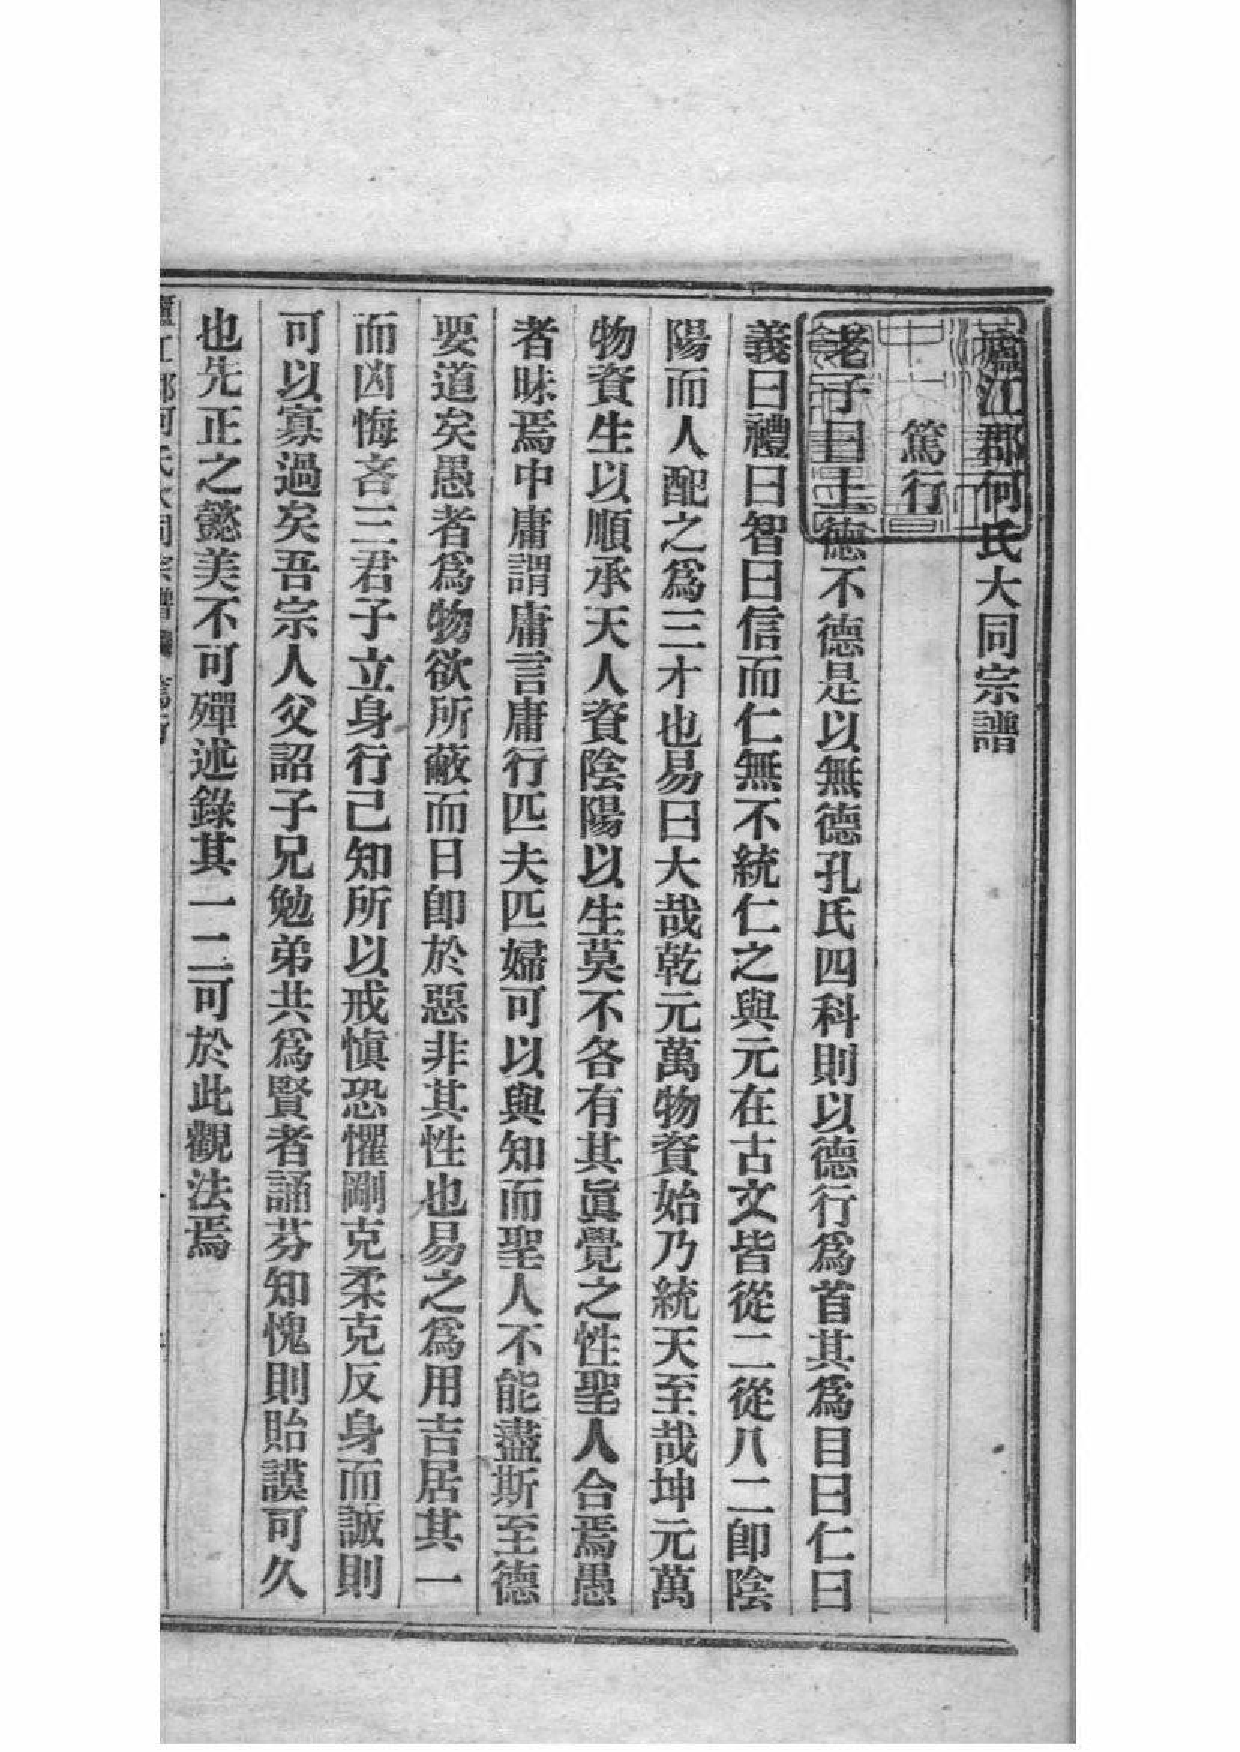 廬江郡何氏大同宗譜
篤行
老子曰上德不德是以無德孔氏四科則以德行爲首其爲目曰仁曰
義曰禮曰智曰信而仁無不統仁之與元在古文皆從二從八二卽陰
陽而人配之爲三才也易曰大哉乾元萬物資始乃統天至哉坤元萬
物資生以順承天人資陰陽以生莫不各有其眞覺之性聖人合焉愚
者昧焉中庸謂庸言庸行匹夫匹婦可以與知而聖人不能盡斯至德
要道矣愚者爲物欲所蔽而日卽於惡非其性也易之爲用吉居其一
而凶悔吝三君子立身行己知所以戒愼恐懼剛克柔克反身而誠則
可以寡過矣吾宗人父詔子兄勉弟共爲賢者誦芬知愧則貽謨可久
也先正之懿美不可殫述錄其一二可於此觀法焉